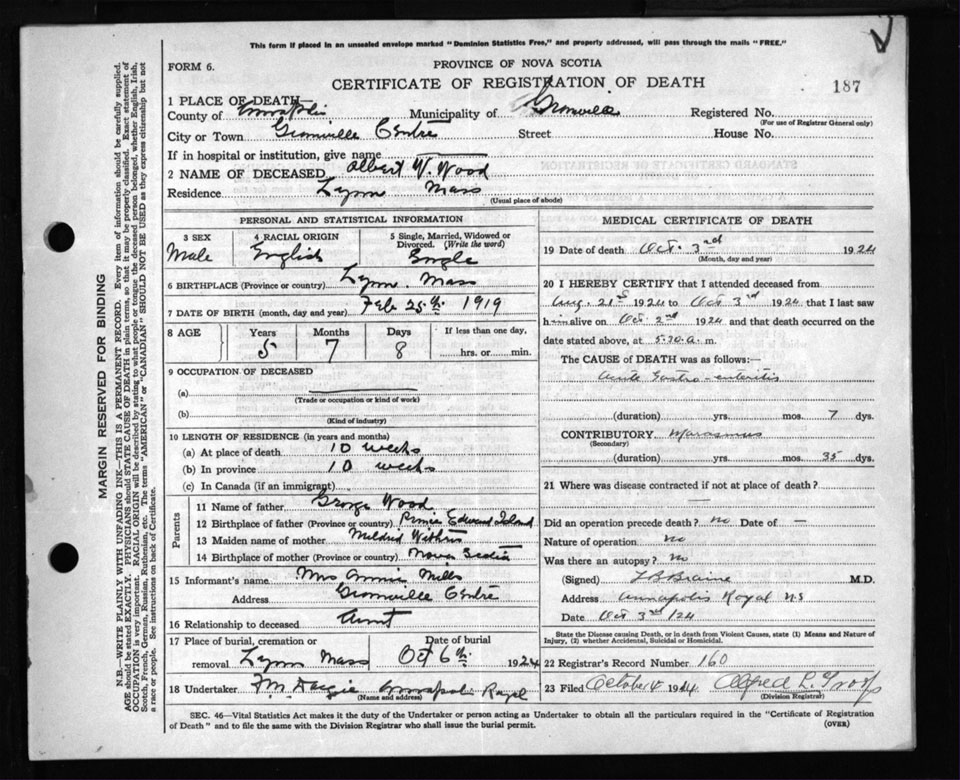 This form if placed in an unsealed envelope marked "Dominion Statistics Free," and properly addressed, will pass through the mails "FREE."
FORM 6.
PROVINCE OF NOVA SCOTIA
CERTIFICATE OF REGISTRATION OF DEATH
187
MARGIN RESERVED FOR BINDING
N.B.—WRITE PLAINLY WITH UNFADING INK—THIS IS A PERMANENT RECORD. Every item of information should be carefully supplied.
AGE should be stated EXACTLY. PHYSICIANS should STATE CAUSE OF DEATH in plain terms, so that it may be properly classified. Exact statement of
OCCUPATION is very important. RACIAL ORIGIN will be described by stating to what people or tongue the deceased person belonged, whether English, Irish,
Scotch, French, German, Russian, Ruthenian, etc. The terms "AMERICAN" or "CANADIAN" SHOULD NOT BE USED as they express citizenship but not
a race or people. See instructions on back of Certificate.
1 PLACE OF DEATH
County of Annapolis Municipality of Granville Registered No.
(For use of Registrar General only)
City or Town Granville Centre Street House No.
If in hospital or institution, give name
2 NAME OF DECEASED Albert W. Wood
Residence Lynn Mass
(Usual place of abode)
PERSONAL AND STATISTICAL INFORMATION
3 SEX Male
4 RACIAL ORIGIN English
5 Single, Married, Widowed or Divorced. (Write the word) Single
6 BIRTHPLACE (Province or country) Lynn Mass
7 DATE OF BIRTH (month, day and year) Feb 25th 1919
8 AGE Years Months Days If less than one day,
5 7 8 hrs. or min.
9 OCCUPATION OF DECEASED
(a)
(Trade or occupation or kind of work)
(b)
(Kind of industry)
10 LENGTH OF RESIDENCE (in years and months)
(a) At place of death 10 weeks
(b) In province 10 weeks
(c) In Canada (if an immigrant)
Parents
11 Name of father George Wood
12 Birthplace of father (Province or country) Prince Edward Island
13 Maiden name of mother Mildred
14 Birthplace of mother (Province or country) Nova Scotia
15 Informant's name Mrs Annie Mills
Address Granville Centre
16 Relationship to deceased Aunt
17 Place of burial, cremation or removal Lynn Mass
Date of burial Oct 6th 1924
18 Undertaker F. M. Annapolis Royal
(Name and address)
MEDICAL CERTIFICATE OF DEATH
19 Date of death Oct. 3rd 1924
(Month, day and year)
20 I HEREBY CERTIFY that I attended deceased from
Aug. 21st 1924 to Oct 3rd 1924 that I last saw
him alive on Oct 2nd 1924 and that death occurred on the
date stated above, at 5.30.a. m.
The CAUSE of DEATH was as follows:—
Acute Gastro-enteritis
(duration) yrs. mos. 7 dys.
CONTRIBUTORY Marasmus
(Secondary)
(duration) yrs. mos. 35 dys.
21 Where was disease contracted if not at place of death?
—
Did an operation precede death? no Date of —
Nature of operation no
Was there an autopsy? no
(Signed) L B Braine M.D.
Address Annapolis Royal N.S
Date Oct 3rd /24
State the Disease causing Death, or in death from Violent Causes, state (1) Means and Nature of
Injury, (2) whether Accidental, Suicidal or Homicidal.
22 Registrar's Record Number 160
23 Filed October 4 1924 Alfred L. Troop
(Division Registrar)
SEC. 46—Vital Statistics Act makes it the duty of the Undertaker or person acting as Undertaker to obtain all the particulars required in the "Certificate of Registration
of Death" and to file the same with the Division Registrar who shall issue the burial permit.
(OVER)